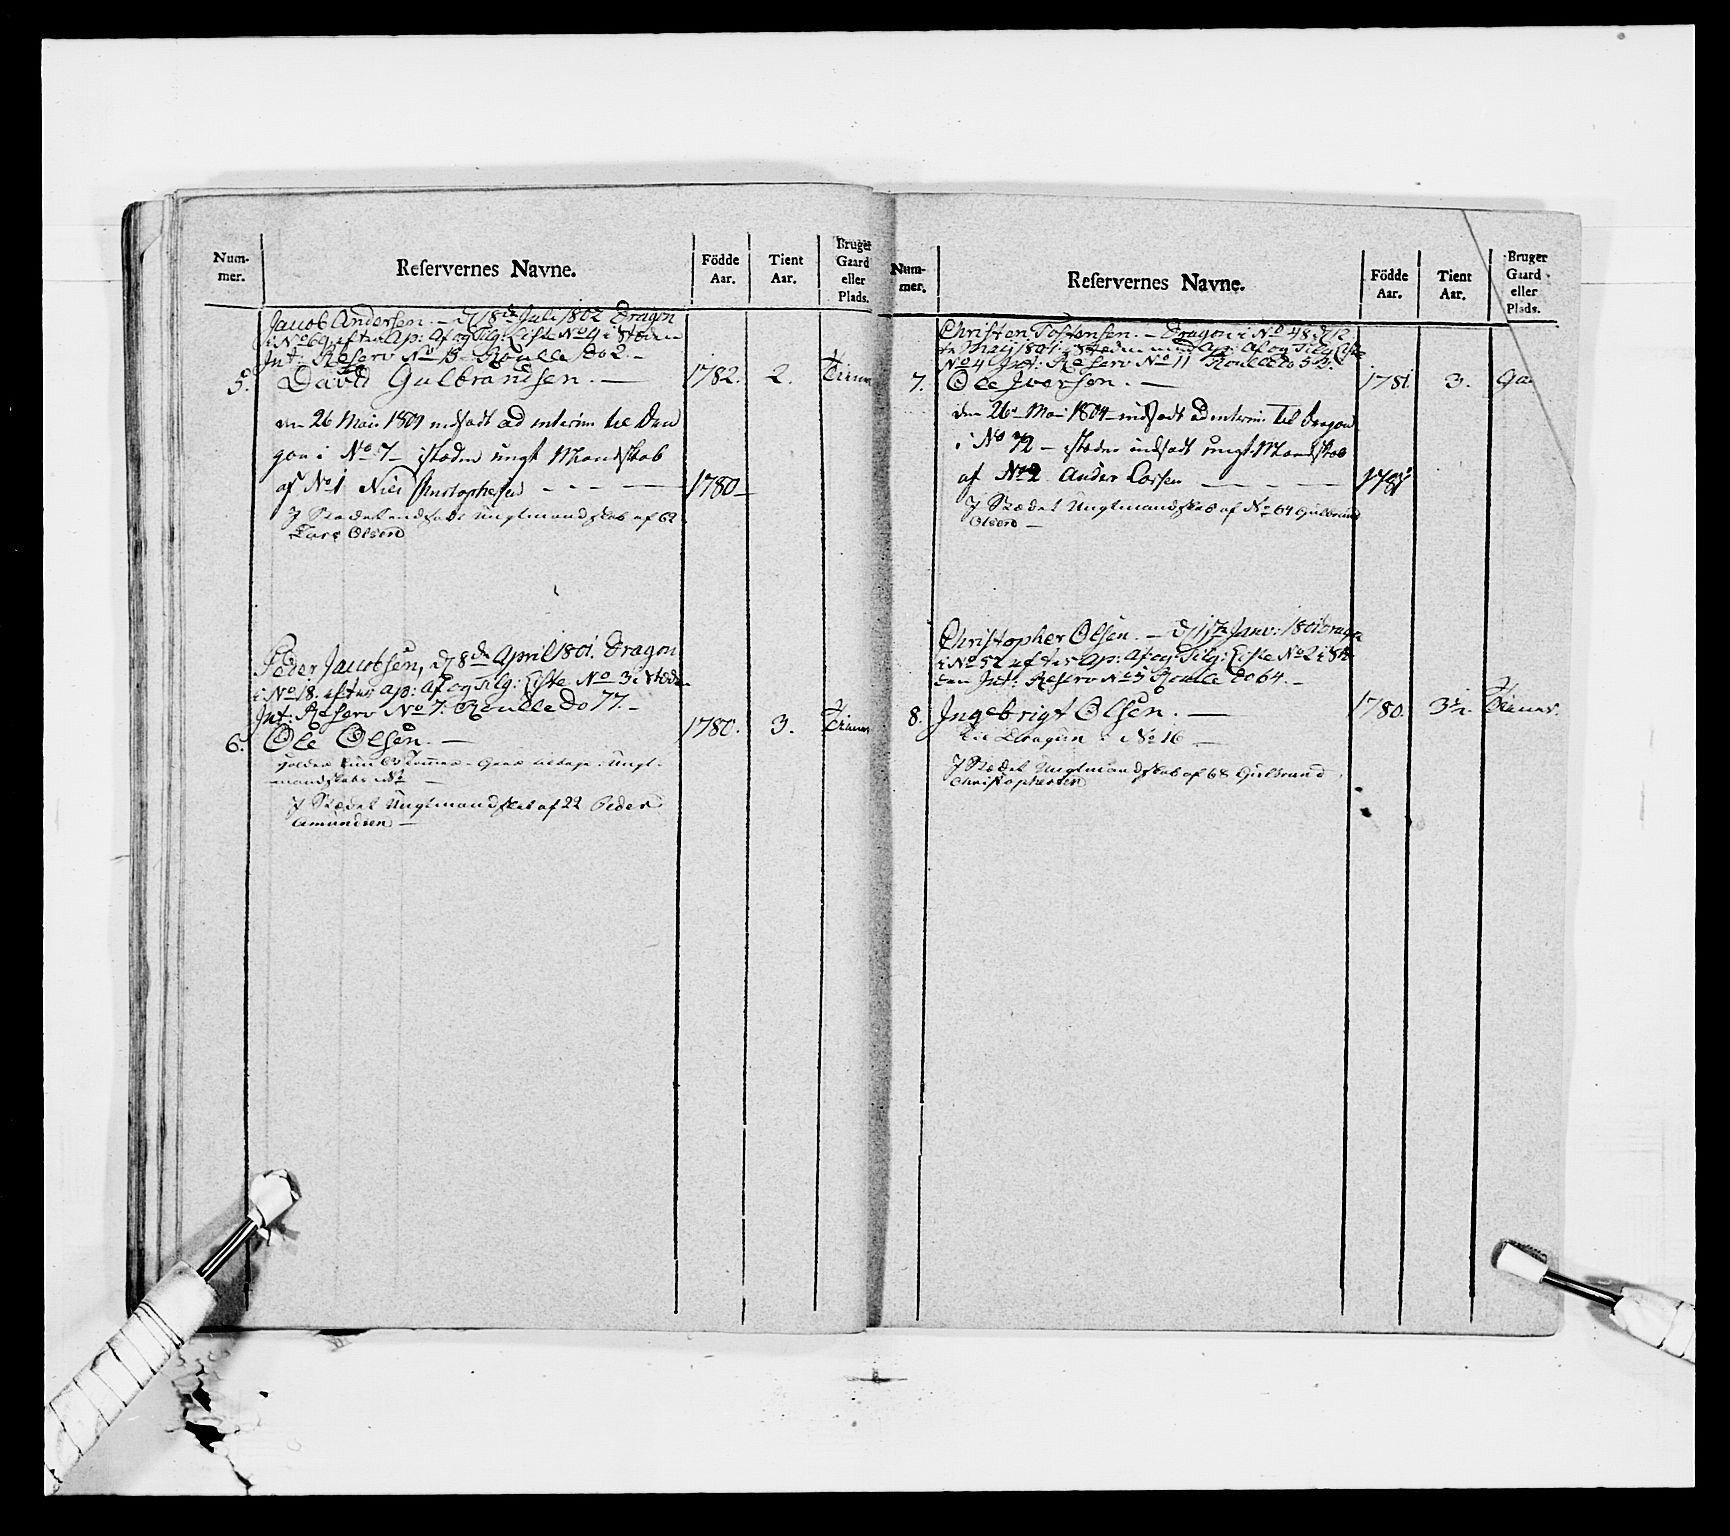 Num-
mer.
Reservernes Navne.
Födde
Aar.
Tient
Aar.
Bruger
Gaard
eller
Plads.
Jacob Andersen. — d. 18de Juli 1802 Dragon
i No 69 efter Ap: Af og Tilg: Liste No 4 i Steden
Int: Reserv No 13 Roulle Do 2. —
5. David Gulbrandsen. — 1782. 2.
den 26 Mai 1804 indsadt ad interim til Dra
gon i No 7 — isteden ungt Mandskab
af No 1 Niels Christophersen — — — 1780 —
I Stedet indsadt Ungtmandskab af 62
Lars Olsen
Peder Jacobsen, d. 8de April 1801. Dragon
i No 18. efter Ap: Af og Tilg: Liste No 3 i steden
Int: Reserv No 7. Roulle Do 77. —
6. Ole Olsen. — 1780. 3.
Ungt-
mandskab No —
I Stedet Ungtmandskab af 22 Peder
Amundsen —
Num-
mer.
Reservernes Navne.
Födde
Aar.
Tient
Aar.
Bruger
Gaard
eller
Plads.
Christen Tostensen. — Dragon i No 48 d. 12
te Maij 1801 i steden med Ap: Af og Tilg Liste
No 4 Int: Reserv No 11 Roulle Do 53.
7. Ole Iversen. — 1781. 3. Ga
den 26de Mai 1804 indsadt ad interim til Dragon
i No 72 — isteden indsadt ungt Mandskab
af No 2 Anders Larsen — — — 1781
I Stedet Ungtmandskab af No 64 Gulbrand
Olsen —
Christopher Olsen. — d. 17de Janv: 1801 Dragon
i No 52 efter Ap: Af og Tilg: Liste No 2 i Ste
den Int: Reserv No 5 Roulle Do 64. —
8. Ingebrigt Olsen. — 1780. 3½.
til Dragun i No 16 —
I Stedet Ungtmandskab af 68 Gulbrand
Christophersen